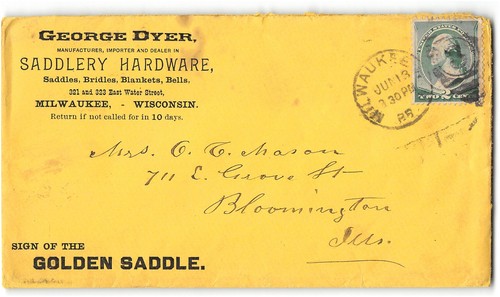 GEORGE DYER,
MANUFACTURER, IMPORTER AND DEALER IN
SADDLERY HARDWARE,
Saddles, Bridles, Blankets, Bells.
321 and 323 East Water Street,
MILWAUKEE, - WISCONSIN.
Return if not called for in 10 days.
MILWAUKEE
JUN 13
3 30 PM
TWO 2 CENTS
Mrs. O. T. Mason
711 E. Grove St
Bloomington
Ills.
SIGN OF THE
GOLDEN SADDLE.